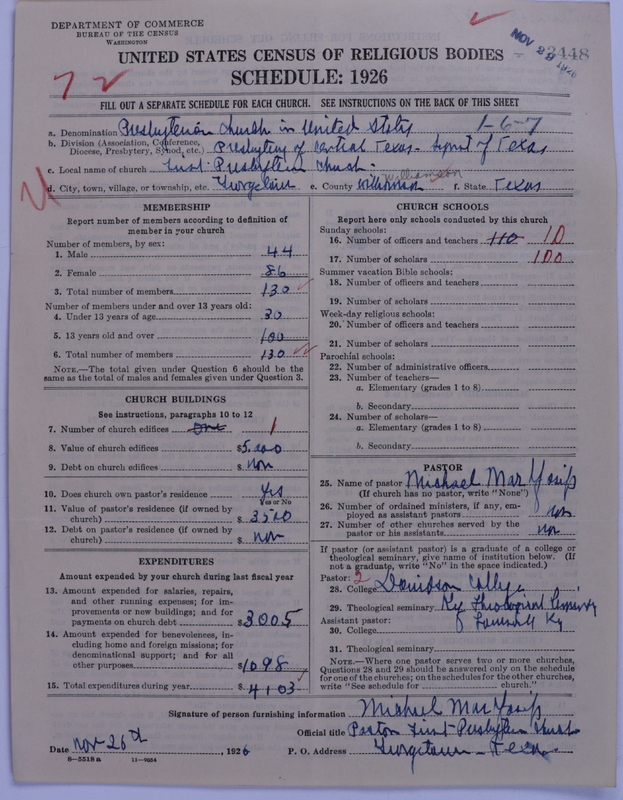 DEPARTMENT OF COMMERCE
BUREAU OF THE CENSUS
WASHINGTON
NOV 29 1926
3448
UNITED STATES CENSUS OF RELIGIOUS BODIES
72
SCHEDULE: 1926
FILL OUT A SEPARATE SCHEDULE FOR EACH CHURCH. SEE INSTRUCTIONS ON THE BACK OF THIS SHEET
a. Denomination Presbyterian Church in United States 1-6-7
b. Division (Association, Conference, Diocese, Presbytery, Synod, etc.) Presbytery of Central Texas - Synod of Texas
c. Local name of church First Presbyterian Church.
d. City, town, village, or township, etc. Georgetown e. County Williamson f. State Texas
MEMBERSHIP
Report number of members according to definition of
member in your church
Number of members, by sex:
1. Male 44
2. Female 86
3. Total number of members 130
Number of members under and over 13 years old:
4. Under 13 years of age 30
5. 13 years old and over 100
6. Total number of members 130
NOTE.—The total given under Question 6 should be the
same as the total of males and females given under Question 3.
CHURCH BUILDINGS
See instructions, paragraphs 10 to 12
7. Number of church edifices One 1
8. Value of church edifices $5.000
9. Debt on church edifices $ non
10. Does church own pastor's residence Yes
Yes or No
11. Value of pastor's residence (if owned by
church) $ 3500
12. Debt on pastor's residence (if owned by
church) $ non
EXPENDITURES
Amount expended by your church during last fiscal year
13. Amount expended for salaries, repairs,
and other running expenses; for im-
provements or new buildings; and for
payments on church debt $3005
14. Amount expended for benevolences, in-
cluding home and foreign missions; for
denominational support; and for all
other purposes $1098
15. Total expenditures during year $ 4103
CHURCH SCHOOLS
Report here only schools conducted by this church
Sunday schools:
16. Number of officers and teachers 110 10
17. Number of scholars 100
Summer vacation Bible schools:
18. Number of officers and teachers
19. Number of scholars
Week-day religious schools:
20. Number of officers and teachers
21. Number of scholars
Parochial schools:
22. Number of administrative officers
23. Number of teachers—
a. Elementary (grades 1 to 8)
b. Secondary
24. Number of scholars—
a. Elementary (grades 1 to 8)
b. Secondary
PASTOR
25. Name of pastor Michael Mar Yosip
(If church has no pastor, write "None")
26. Number of ordained ministers, if any, em-
ployed as assistant pastors non
27. Number of other churches served by the
pastor or his assistants non
If pastor (or assistant pastor) is a graduate of a college or
theological seminary, give name of institution below. (If
not a graduate, write "No" in the space indicated.)
Pastor: 2
28. College Davidson College
29. Theological seminary Ky Theological Seminary
Assistant pastor: of Louisville Ky
30. College
31. Theological seminary
NOTE.—Where one pastor serves two or more churches,
Questions 28 and 29 should be answered only on the schedule
for one of the churches; on the schedules for the other churches,
write "See schedule for church."
Signature of person furnishing information Michael Mar Yosip
Official title Pastor First Presbyterian Church
Date Nov 26th, 1926 P. O. Address Georgetown - Texas
8-5518 a 11-9054